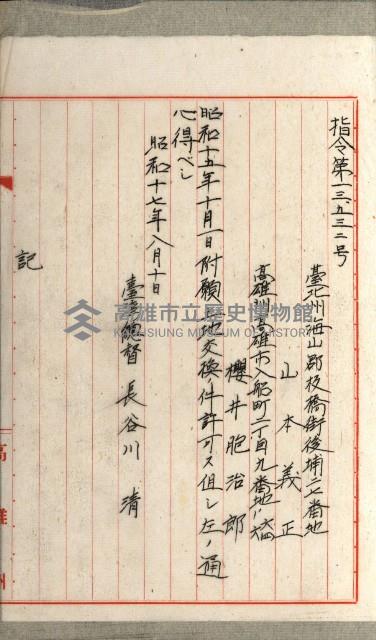 指令第一三、五三二号
臺北州海山郡板橋街後埔二七番地
山本義正
高雄州高雄市入船町二丁目九番地ノ
櫻井胞治郎
昭和十五年十月一日附願土地交換ノ件許可ス但シ左ノ通
心得ベシ
昭和十七年八月十日
臺灣總督 長谷川清
記
高雄州
高雄市立歷史博物館
KAOHSIUNG MUSEUM OF HISTORY